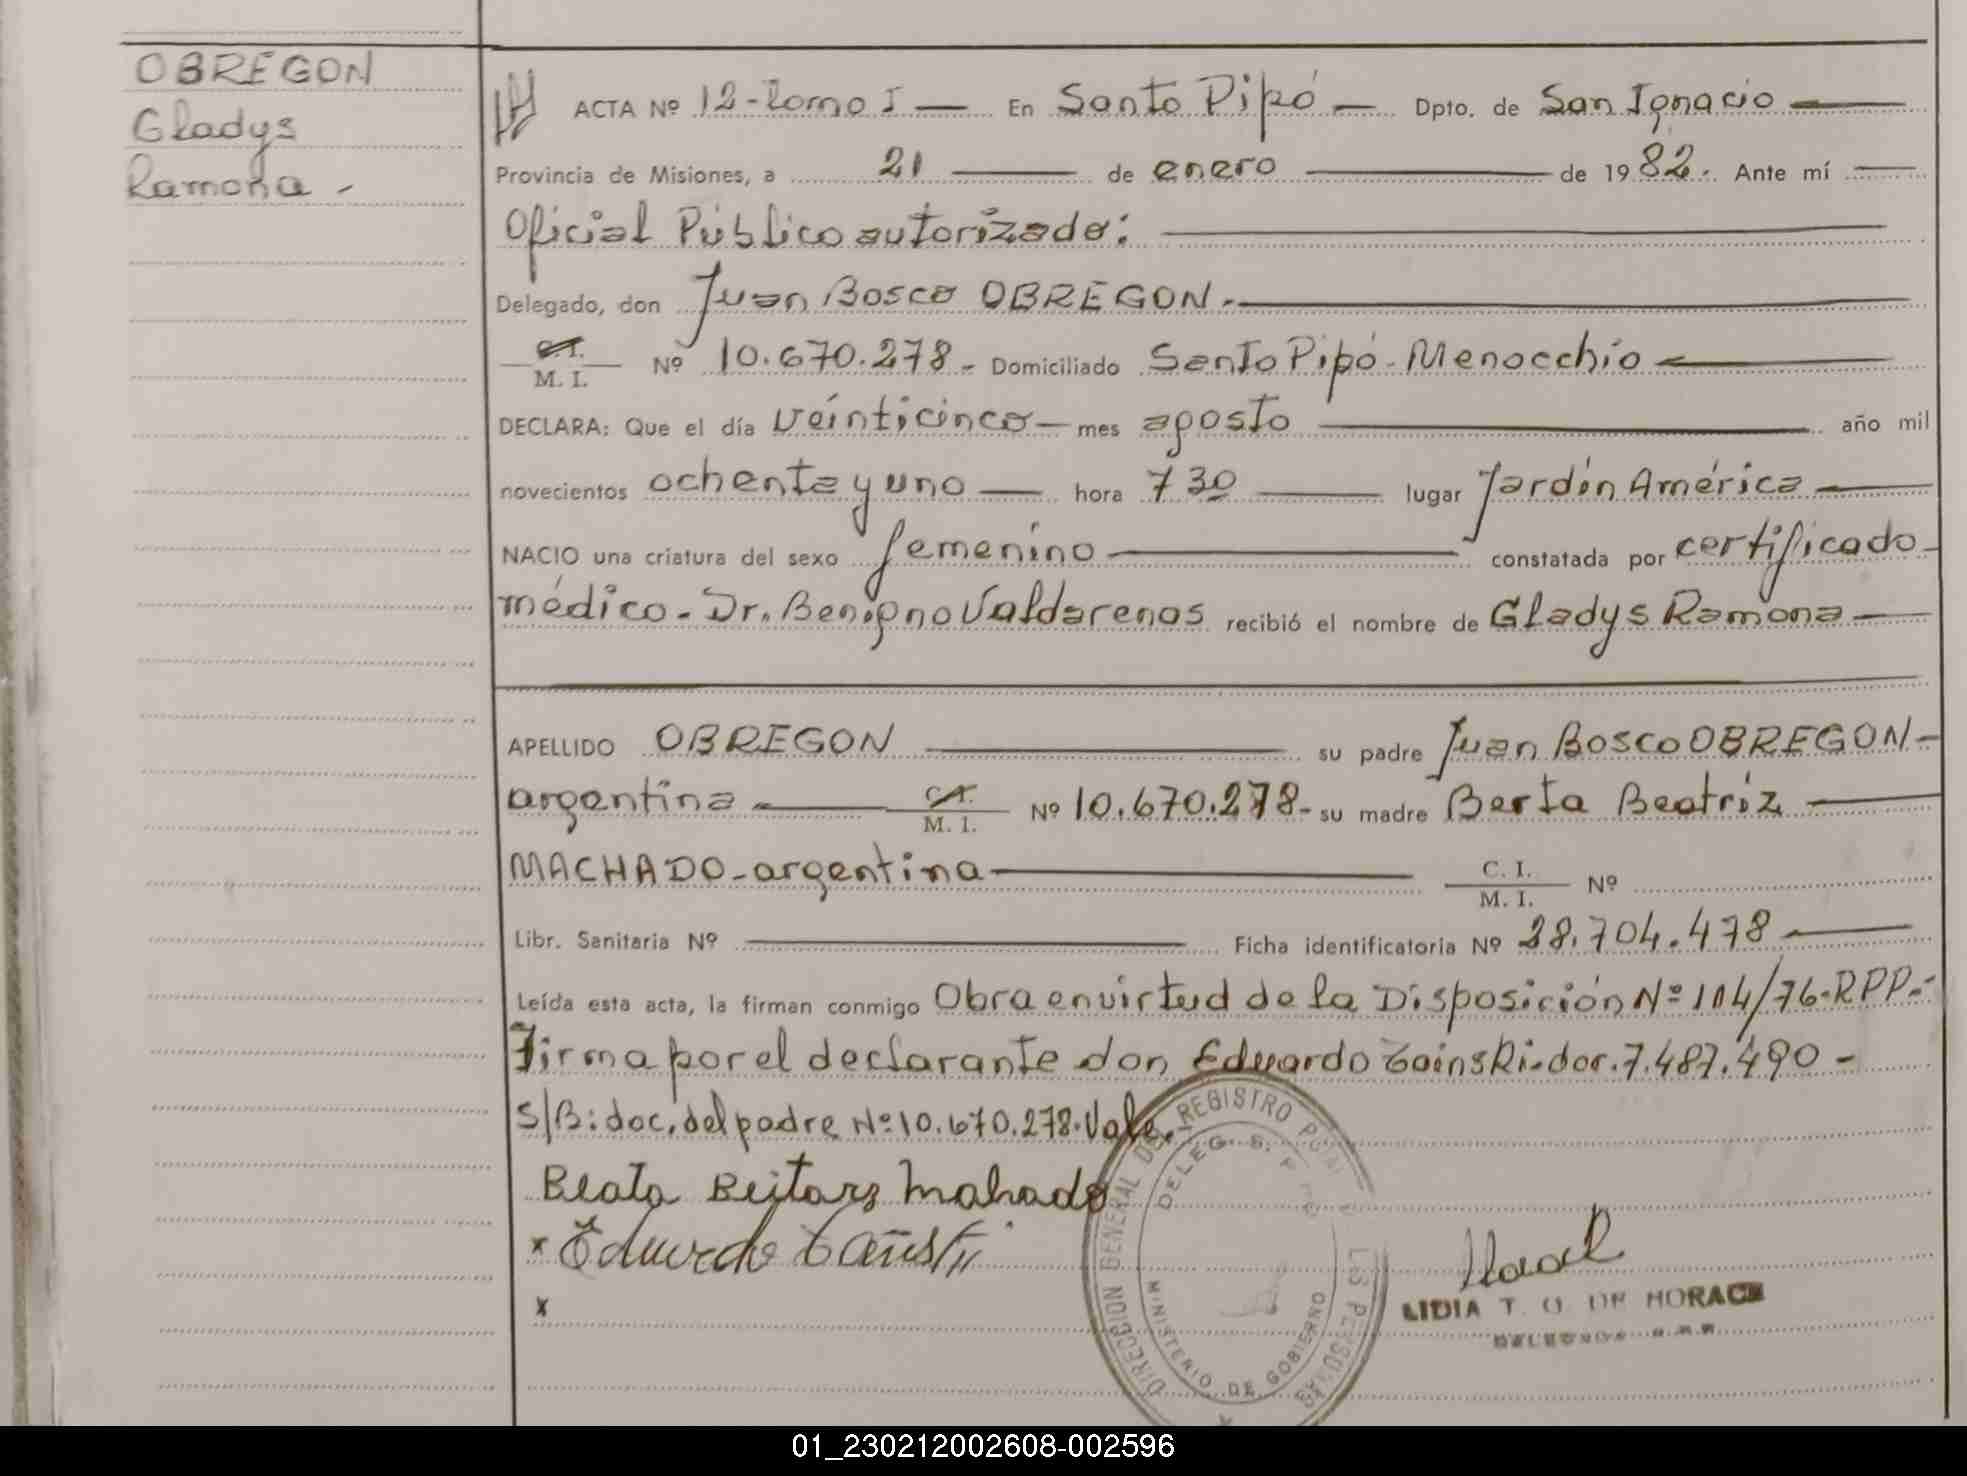 OBREGON
Gladys
Ramona -
ACTA Nº 12-Tomo I — En Santo Pipó — Dpto. de San Ignacio —
Provincia de Misiones, a 21 — de enero — de 1982. Ante mí —
Oficial Público autorizado: —
Delegado, don Juan Bosco OBREGON. —
C.I.
M. I. Nº 10.670.278 - Domiciliado Santo Pipó - Menocchio —
DECLARA: Que el día veinticinco — mes agosto — año mil
novecientos ochenta y uno — hora 7 30 — lugar Jardín América —
NACIO una criatura del sexo femenino — constatada por certificado
médico - Dr. Benigno Valdarenas recibió el nombre de Gladys Ramona —
APELLIDO OBREGON — su padre Juan Bosco OBREGON -
argentina — C.I.
M. I. Nº 10.670.278 - su madre Berta Beatriz —
MACHADO - argentina — C. I.
M. I. Nº
Libr. Sanitaria Nº — Ficha identificatoria Nº 28.704.478 —
Leída esta acta, la firman conmigo Obra en virtud de la Disposición Nº 104/76-RPP.-
Firma por el declarante don Eduardo doc. 7.487.490 -
S/B: doc. del padre Nº 10.670.278. Vale.
Beata Beitarz Mahado
x Eduardo
x
DIRECCION GENERAL DEL REGISTRO LAS PERSONAS
DELEG. S.
MINISTERIO DE GOBIERNO
LIDIA T. O. DE HORACK
01_230212002608-002596